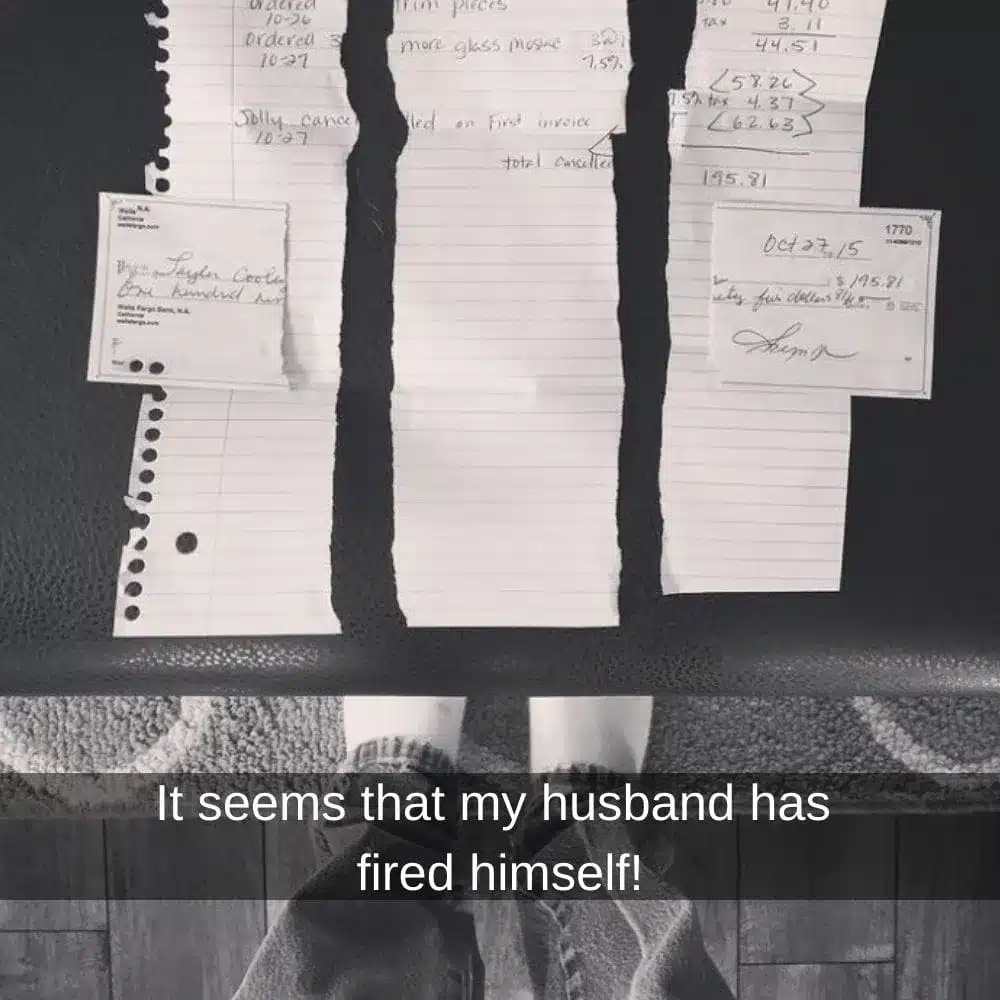 ordered
10-26
ordered 3
10-27
Jolly cance
10-27
Trim pieces
more glass mosaic
7.5%
lled on First invoice
total cancelled
41.40
tax 3.11
44.51
58.26
7.5% tax 4.37
62.63
195.81
Wells N.A.
California
wellsfargo.com
Taylor
One hundred
Wells Fargo Bank, N.A.
California
wellsfargo.com
1770
Oct 27, 15
$ 195.81
ety five dollars
It seems that my husband has
fired himself!